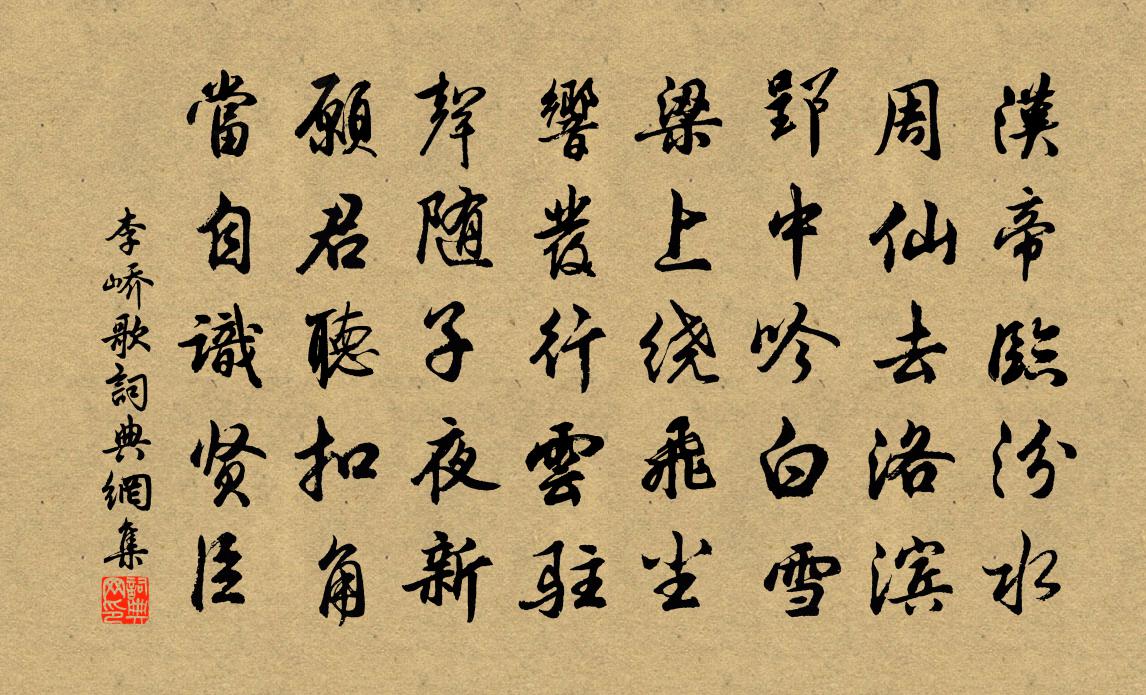 漢帝臨汾水
周仙去洛滨
郢中吟白雪
梁上绕飛尘
響發行雲駐
聲随子夜新
願君聽扣角
當自識贤臣
李峤歌詞典網集
詞典网印